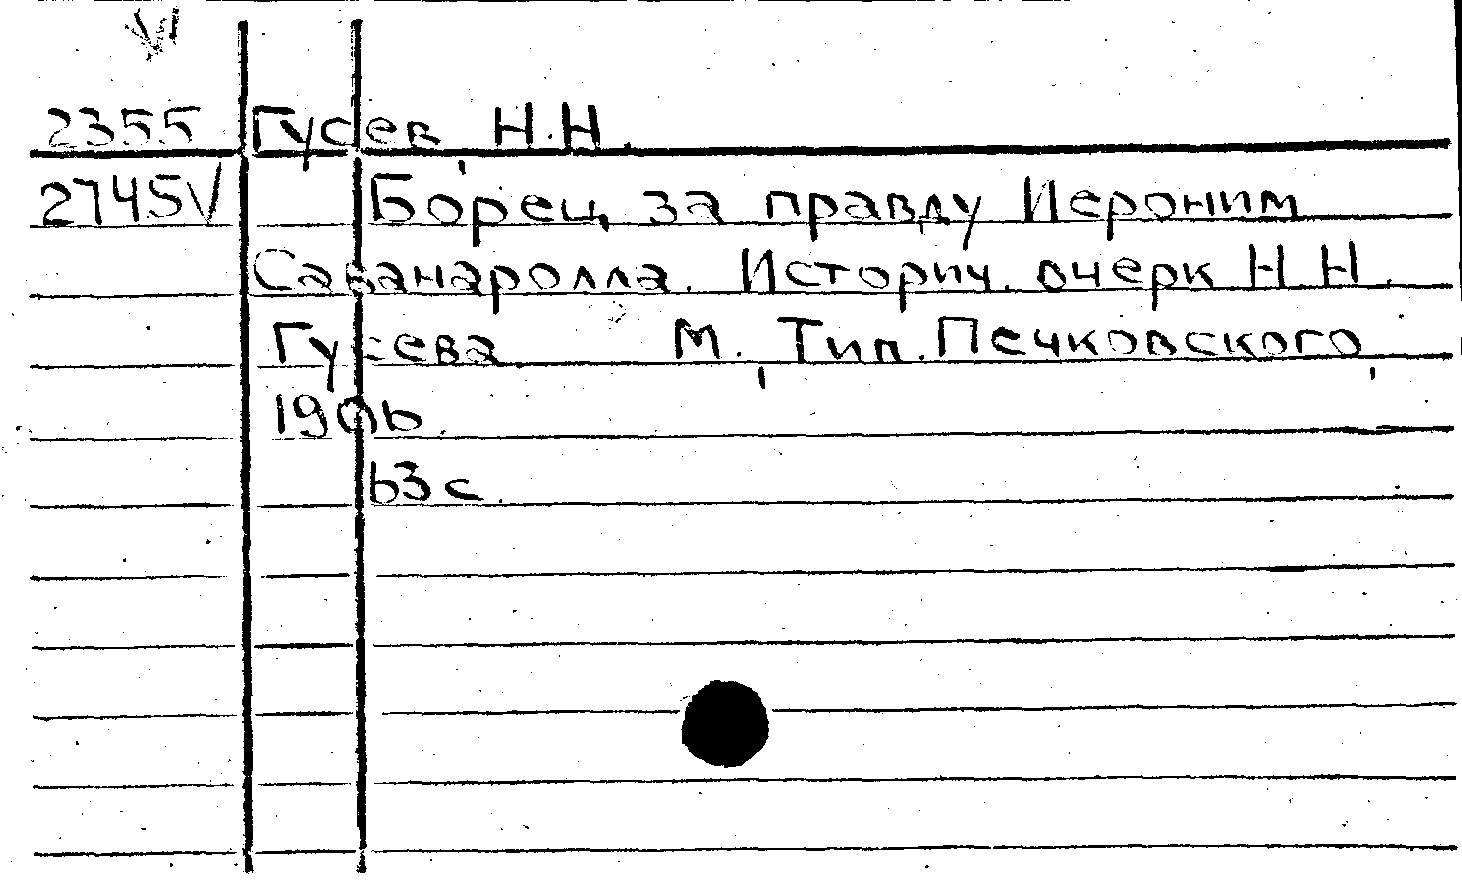 2355 Гусев, Н.Н.
2745V Борец за правду Иероним
Саванаролла. Историч. очерк Н.Н.
Гусева М., Тип. Печковского,
1906.
63 с.